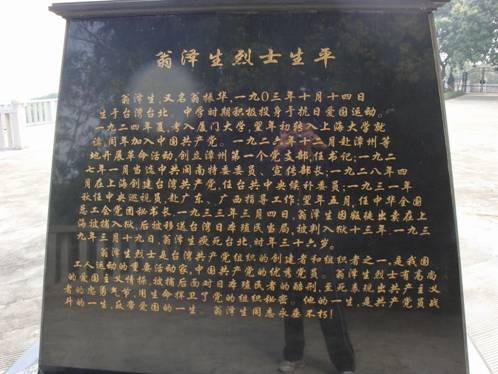 翁泽生烈士生平
翁泽生,又名翁振华,一九0三年十月十四日
生于台湾台北,中学时期积极投身于抗日爱国运动。
一九二四年夏,考入厦门大学,翌年初转入上海大学就
读,同年加入中国共产党。一九二六年十二月赴漳州等
地开展革命活动,创立漳州第一个党支部,任书记;一九二
七年一月当选中共闽南特委委员、宣传部长;一九二八年四
月在上海创建台湾共产党,任台共中央候补委员;一九三一年
秋任中央巡视员,赴广东、广西指导工作;翌年五月,任中华全国
总工会党团秘书长。一九三三年三月四日,翁泽生因叛徒出卖在上
海被捕入狱,后被移送台湾日本殖民当局,被判入狱十三年。一九三
九年三月十九日,翁泽生瘐死台北,时年三十六岁。
翁泽生烈士是台湾共产党组织的创建者和组织者之一,是我国
工人运动的重要活动家,中国共产党的优秀党员。翁泽生烈士有高尚
的爱国主义情操,被捕后面对日本殖民者的酷刑,至死表现出共产主义
者的忠勇气节,用生命捍卫了党的组织秘密。他的一生,是共产党员战
斗的一生,反帝爱国的一生。翁泽生同志永垂不朽!